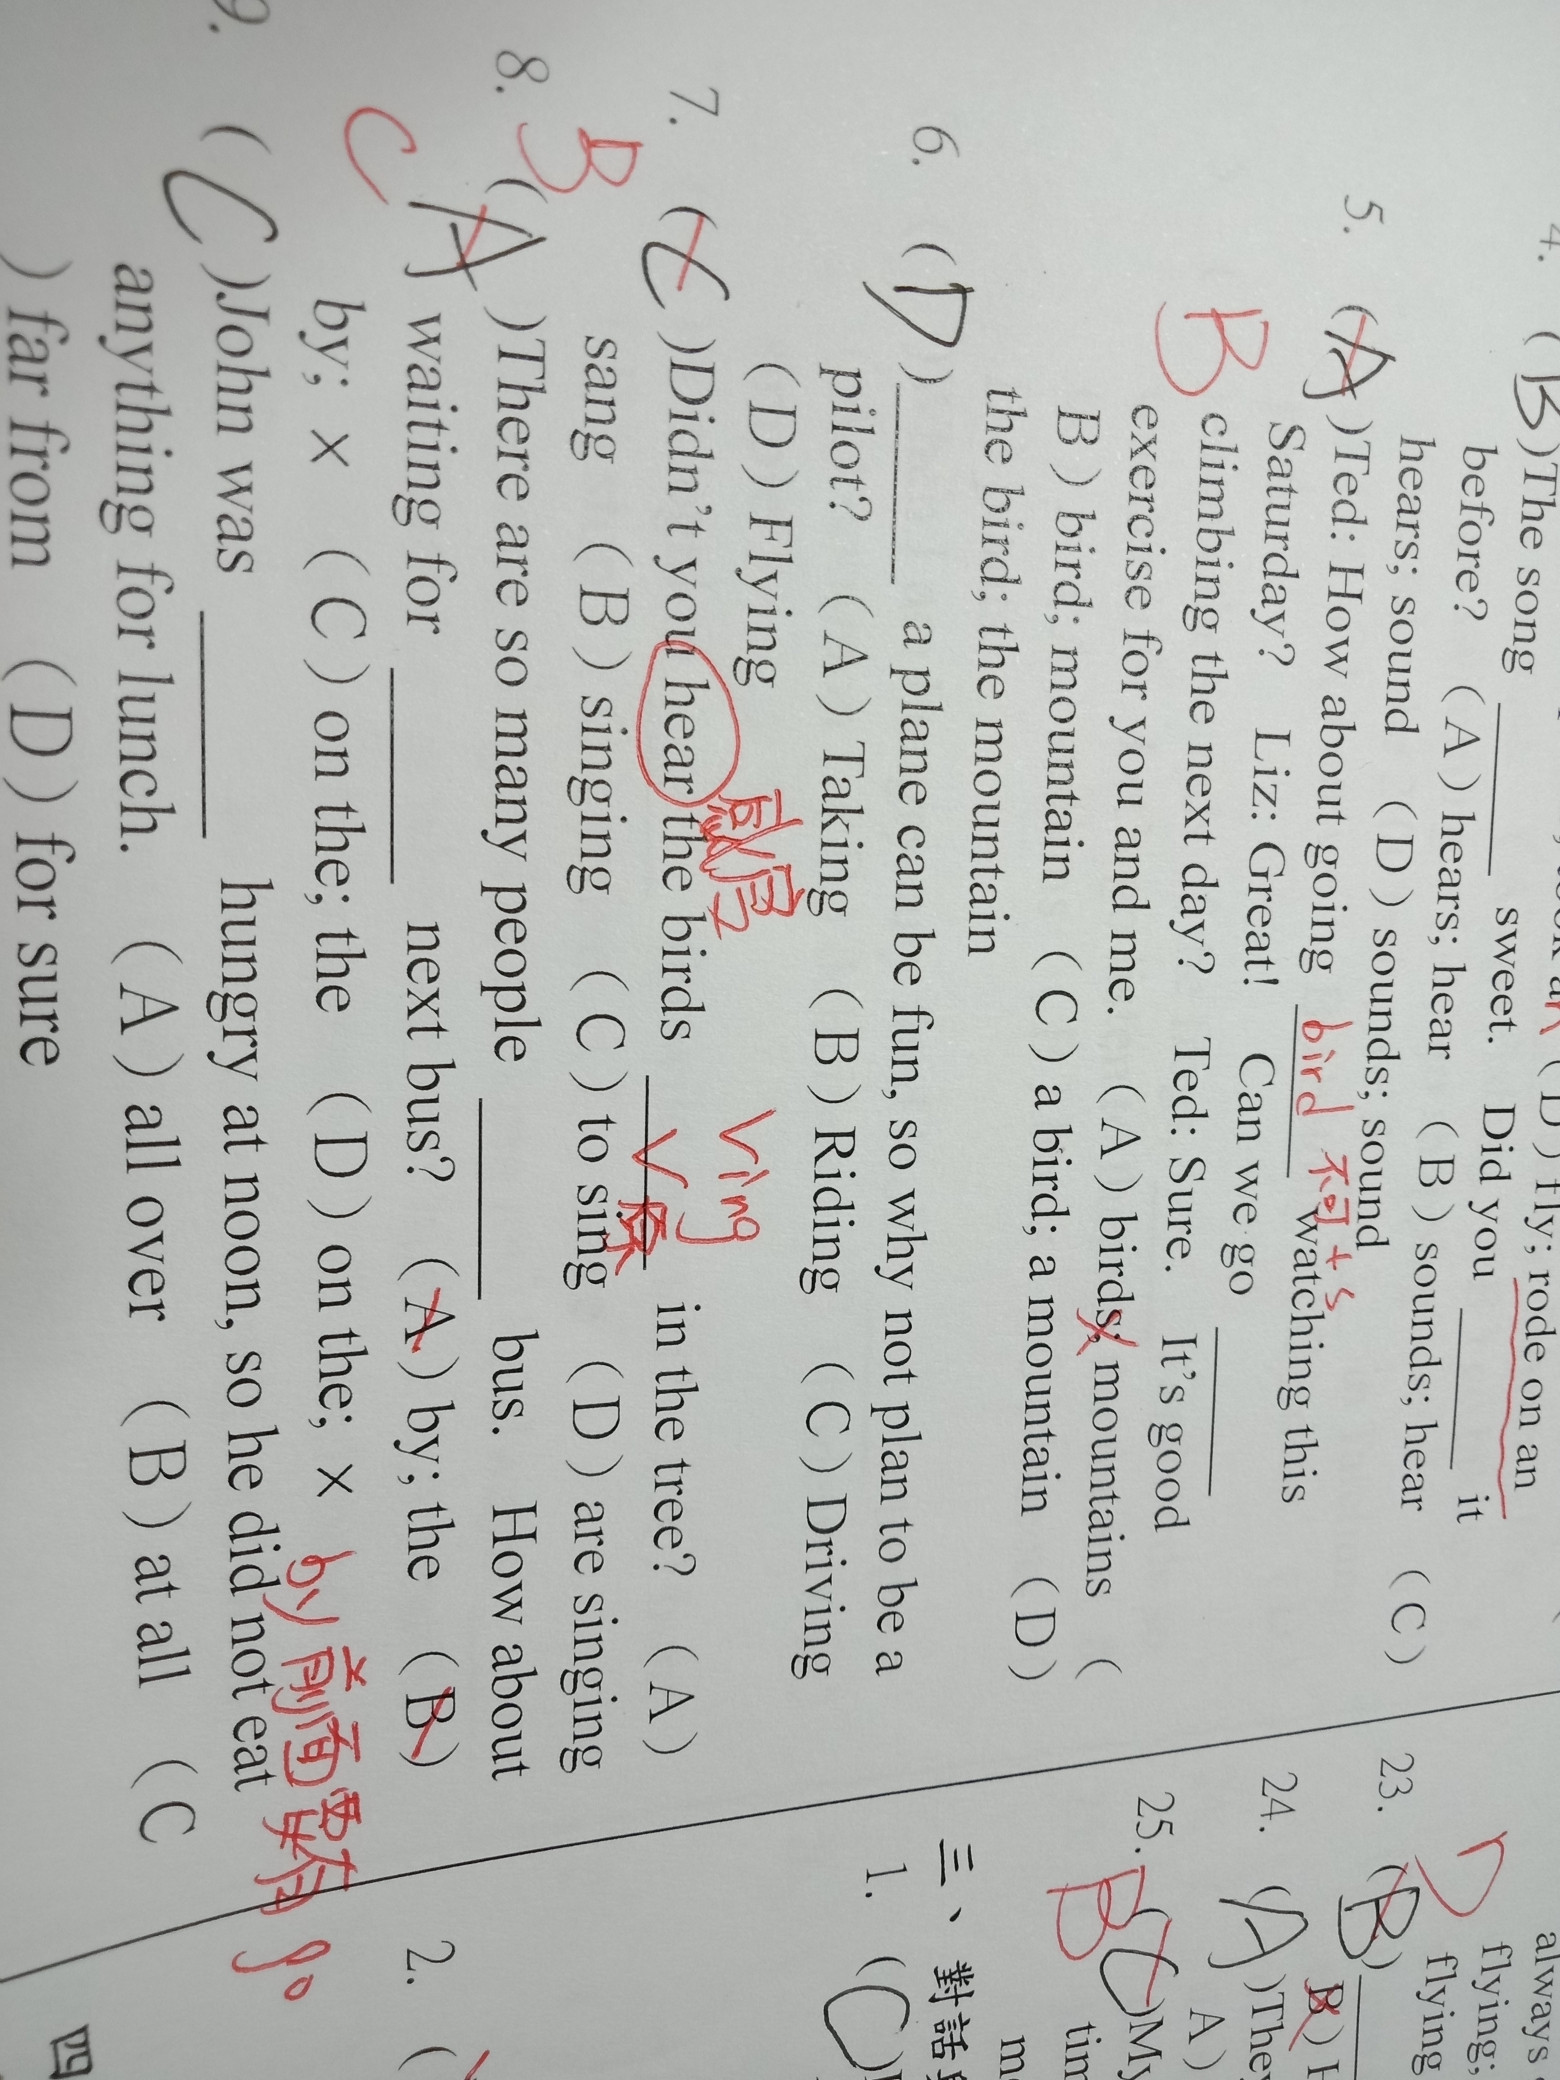 4. ( B )The song ____ sweet. Did you ____ it
before? (A) hears; hear (B) sounds; hear (C)
hears; sound (D) sounds; sound
bird 不可+s
B
5. ( A )Ted: How about going ____ watching this
Saturday? Liz: Great! Can we go ____
climbing the next day? Ted: Sure. It's good
exercise for you and me. (A) birds; mountains (
B) bird; mountain (C) a bird; a mountain (D)
the bird; the mountain
6. ( D )____ a plane can be fun, so why not plan to be a
pilot? (A) Taking (B) Riding (C) Driving
(D) Flying
感官 Ving
V原
B
7. ( C )Didn't you hear the birds ____ in the tree? (A)
sang (B) singing (C) to sing (D) are singing
C
8. ( A )There are so many people ____ bus. How about
waiting for ____ next bus? (A) by; the (B)
by; × (C) on the; the (D) on the; ×
by 前面要有 go
9. ( C )John was ____ hungry at noon, so he did not eat
anything for lunch. (A) all over (B) at all (C
) far from (D) for sure
rode on an
always
flying;
flying
D
23. ( B )
B)
24. ( A )They
A)
B
25. ( C )My
tim
三、對話
1. ( C )
2. (
四